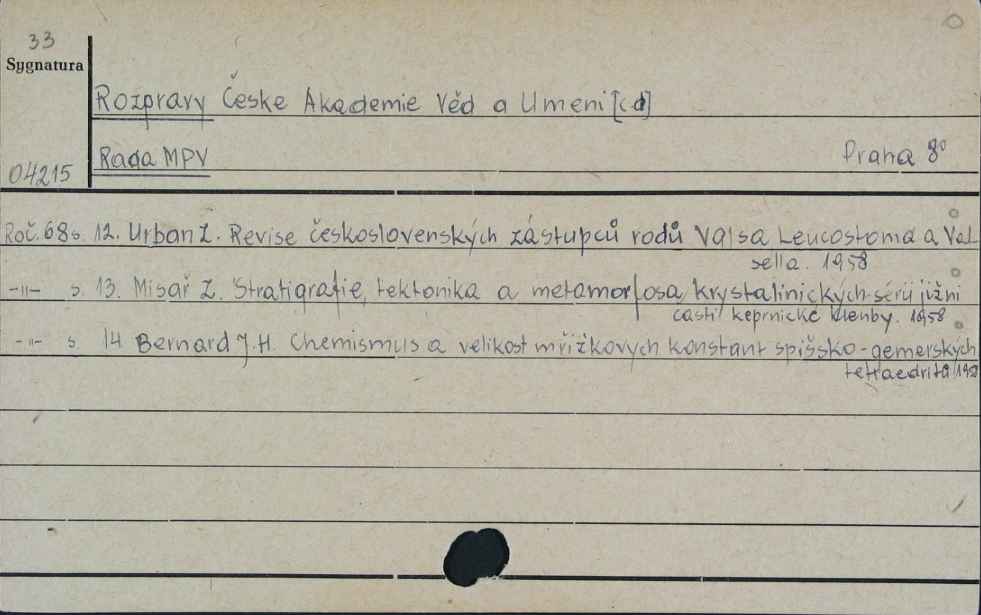 33
Sygnatura
Rozpravy České Akademie Věd a Umeni [cd]
Rada MPV
Praha 8°
04215
Roč. 68 s. 12. Urban Z. Revise československých zástupců rodů Valsa Leucostoma a Val
sella. 1958
-"- s. 13. Misař Z. Stratigrafie, tektonika a metamorfosa krystalinických sérií jižní
časti keprnické klenby. 1958
-"- s. 14 Bernard J.H. Chemismus a velikost mřížkových konstant spišsko-gemerských
tetraedritů 1958